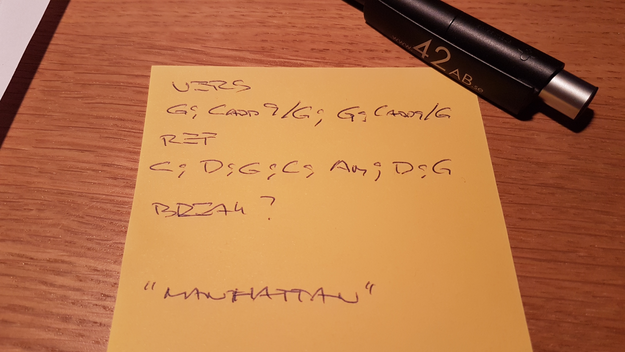 VERS
G; CADD9/G; G; CADD9/G
REF
C; D; G; C; Am; D; G
BREAK?
"MANHATTAN"
42 AB